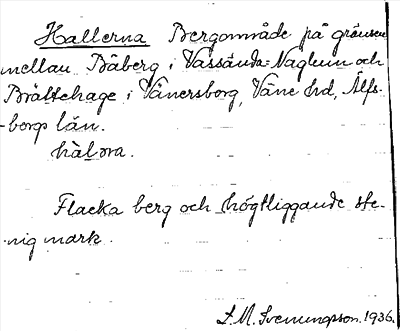 Hallerna Bergområde på gränsen
mellan Båberg i Vassända-Naglum och
Brättehage i Vänersborg, Väne hd, Älfs-
borgs län.
hàl̄ɔṇa.
Flacka berg och högtliggande ste-
nig mark.
S. M. Svenungsson. 1936.